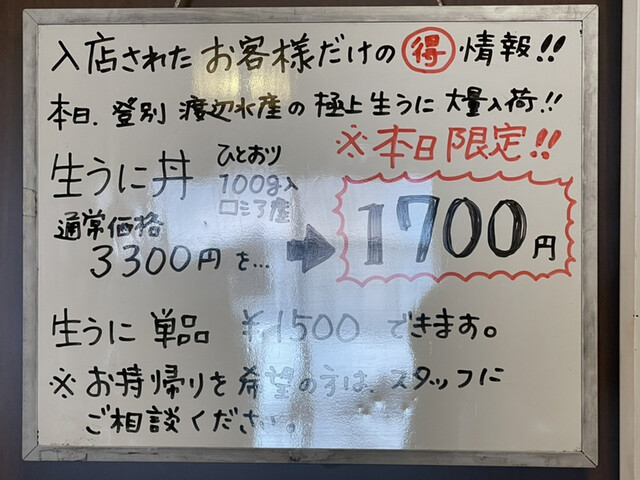 入店されたお客様だけの得情報!!
本日、登別 渡辺水産の極上生うに大量入荷!!
※本日限定!!
生うに丼 ひとおり
100g入
ロシア産
通常価格
3300円を… ➡ 1700円
生うに 単品 ¥1500 できます。
※お持帰りを希望の方は、スタッフに
ご相談ください。